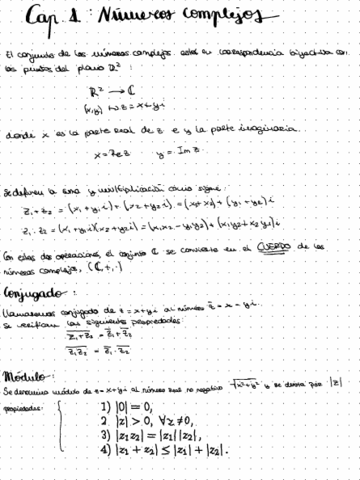 Cap. 1: Números complejos
El conjunto de los números complejos está en correspondencia biyectiva con
los puntos del plano ℝ²:
ℝ² → ℂ
(x,y) ⇝ z = x+yi
donde x es la parte real de z e y la parte imaginaria.
x = Re z y = Im z
Se definen la suma y multiplicación como sigue:
z₁ + z₂ = (x₁ + y₁i) + (x₂ + y₂i) = (x₁ + x₂) + (y₁ + y₂)i
z₁ · z₂ = (x₁ + y₁i)(x₂ + y₂i) = (x₁x₂ - y₁y₂) + (x₁y₂ + x₂y₁)i
Con estas dos operaciones, el conjunto ℂ se convierte en el CUERPO de los
números complejos, (ℂ,+,·)
Conjugado:
Llamaremos conjugado de z = x+yi al número z̅ = x - yi.
Se verifican las siguientes propiedades:
\overline{z₁+z₂} = z̅₁ + z̅₂
\overline{z₁z₂} = z̅₁ · z̅₂
Módulo:
Se denomina módulo de z = x+yi al número real no negativo √(x²+y²) y se denota por |z|
propiedades:
1) |0| = 0,
2 |z| > 0, ∀z ≠ 0,
3) |z₁z₂| = |z₁||z₂|,
4) |z₁ + z₂| ≤ |z₁| + |z₂|.